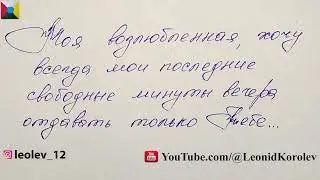 Моя возлюбленная, хочу
всегда мои последние
свободные минуты вечера
отдавать только Тебе...
leolev_12
YouTube.com/@LeonidKorolev